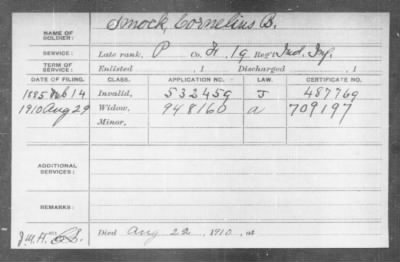 NAME OF SOLDIER: Smock, Cornelius B.
SERVICE: Late rank, P Co. H, 19 Reg't Ind. Inf.
TERM OF SERVICE: Enlisted , 1 Discharged , 1
DATE OF FILING. CLASS. APPLICATION NO. LAW. CERTIFICATE NO.
1885 Feb 14 Invalid, 532459 J 487769
1910 Aug 29 Widow, 948160 a 709197
Minor,
ADDITIONAL SERVICES:
REMARKS:
Died Aug 22, 1910, at